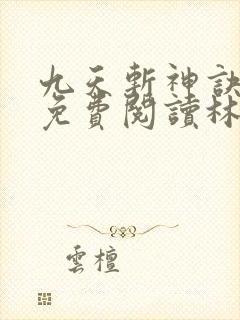 九天斬神訣
免費閱讀林
雲檀